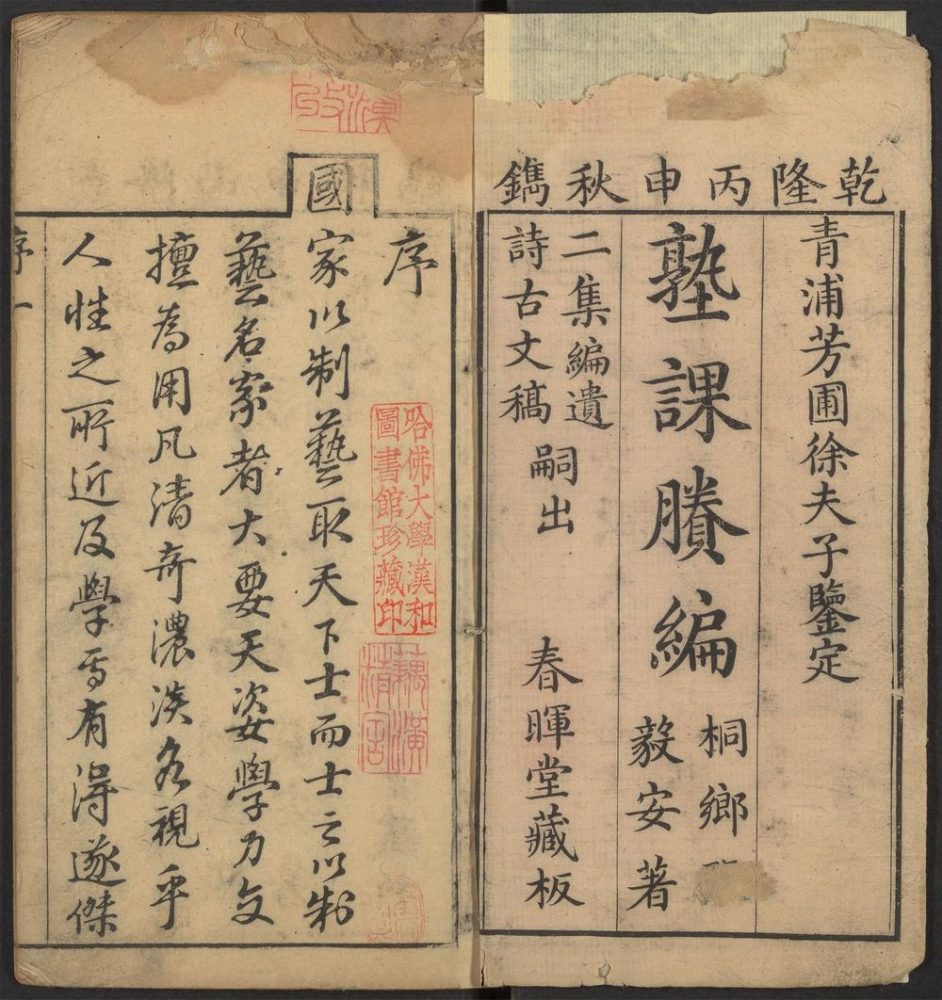 乾隆丙申秋鐫
青浦芳圃徐夫子鑒定
塾課賸編
桐鄉
毅安著
二集編遺
詩古文稿
嗣出
春暉堂藏板
序
國
家以制藝取天下士而士之以制
藝名家者大要天姿學力交
擅為用凡清奇濃淡各視乎
人性之所近及學焉有得遂傑
序
一
哈佛大學漢和
圖書館珍藏印